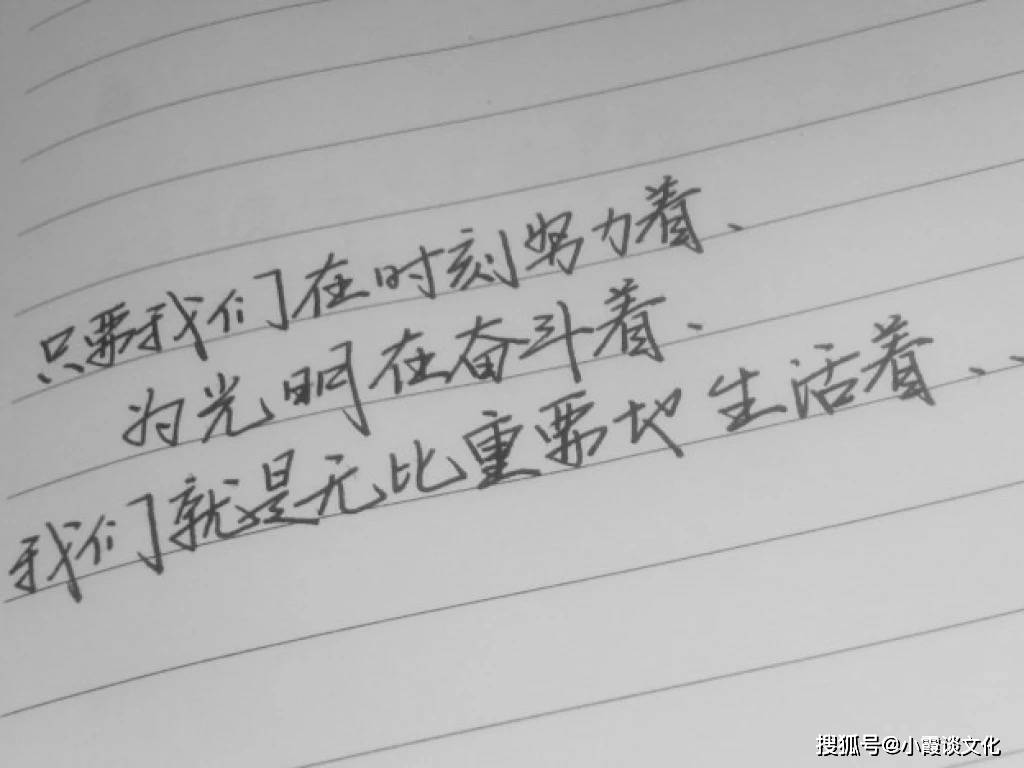 只要我们在时刻努力着、
为光明在奋斗着、
我们就是无比重要地生活着、、
搜狐号@小霞谈文化